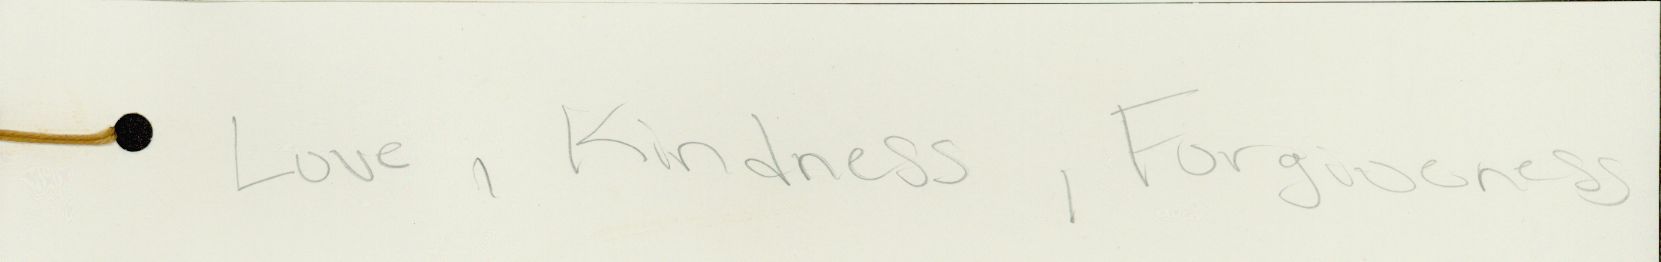 Love, Kindness, Forgiveness